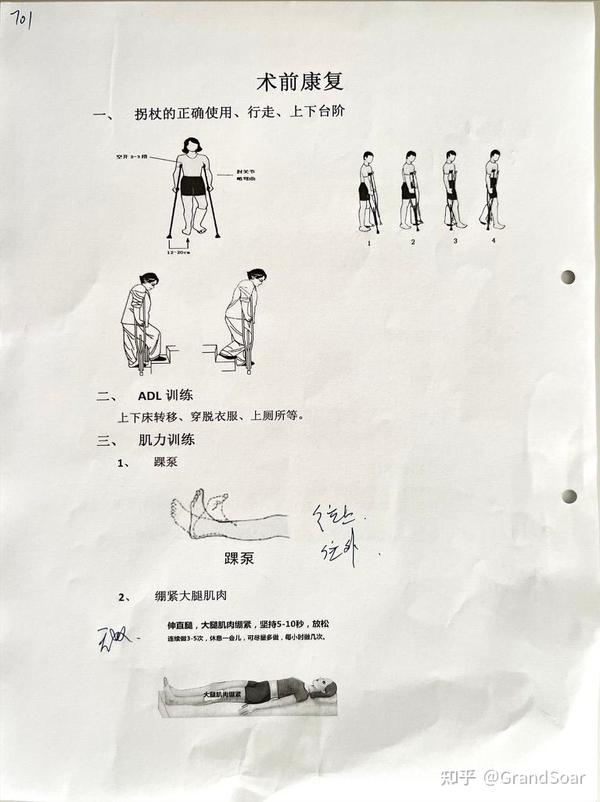 701
术前康复
一、 拐杖的正确使用、行走、上下台阶
空开2-3指
肘关节
略弯曲
12-20cm
1 2 3 4
二、 ADL 训练
上下床转移、穿脱衣服、上厕所等。
三、 肌力训练
1、 踝泵
往上.
往外.
踝泵
2、 绷紧大腿肌肉
伸直腿，大腿肌肉绷紧，坚持5-10秒，放松
连续做3-5次，休息一会儿，可尽量多做，每小时做几次。
大腿肌肉绷紧
知乎 @GrandSoar